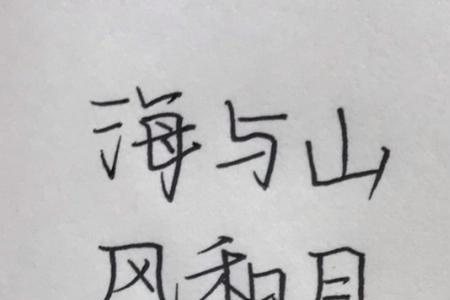 海与山
风和月